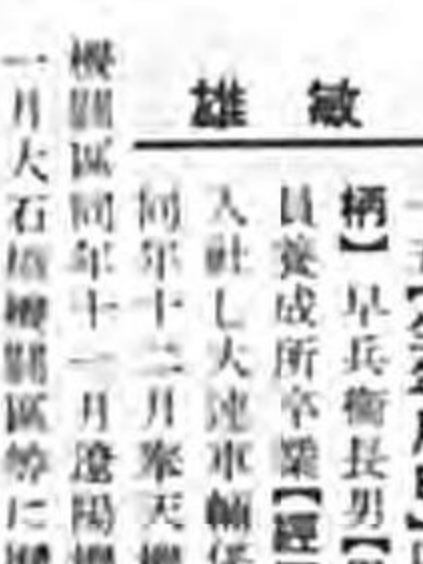 敏雄
柄】早兵衞長男【
員養成所卒業【經
入社し大連車輛係
同年十二月奉天機
機關區同年十一月遼陽機
一月大石橋機關區勞に歷